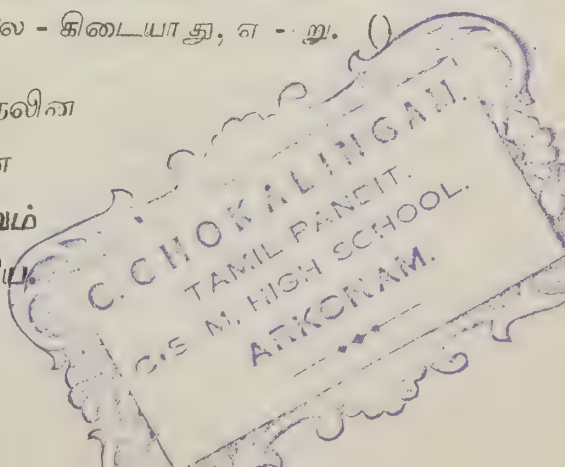 ல - கிடையாது, எ - று. ()
தலின
ன
வும்
ய.
C. CHOKALINGAM.
TAMIL PANDIT.
C.S M. HIGH SCHOOL.
ARKONAM.